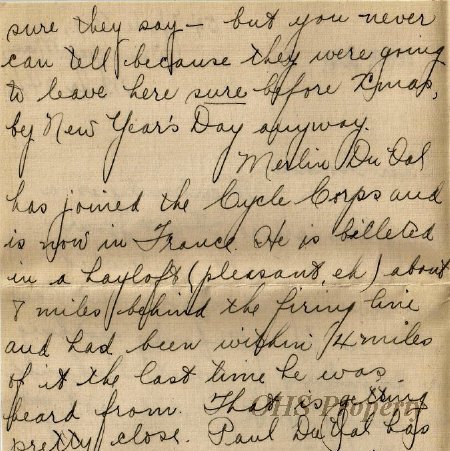 sure they say — but you never
can tell because they were going
to leave here sure before Xmas,
by New Year's Day anyway.
Merlin DuVal
has joined the Cycle Corps and
is now in France. He is billeted
in a hayloft (pleasant, eh) about
7 miles behind the firing line
and had been within 4 miles
of it the last time he was
heard from. That is getting
pretty close. Paul DuVal has
OHS Property